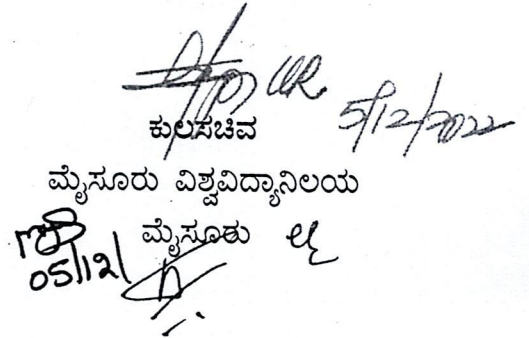 5/12/2022
ಕುಲಸಚಿವ
ಮೈಸೂರು ವಿಶ್ವವಿದ್ಯಾನಿಲಯ
ಮೈಸೂರು
05/12/